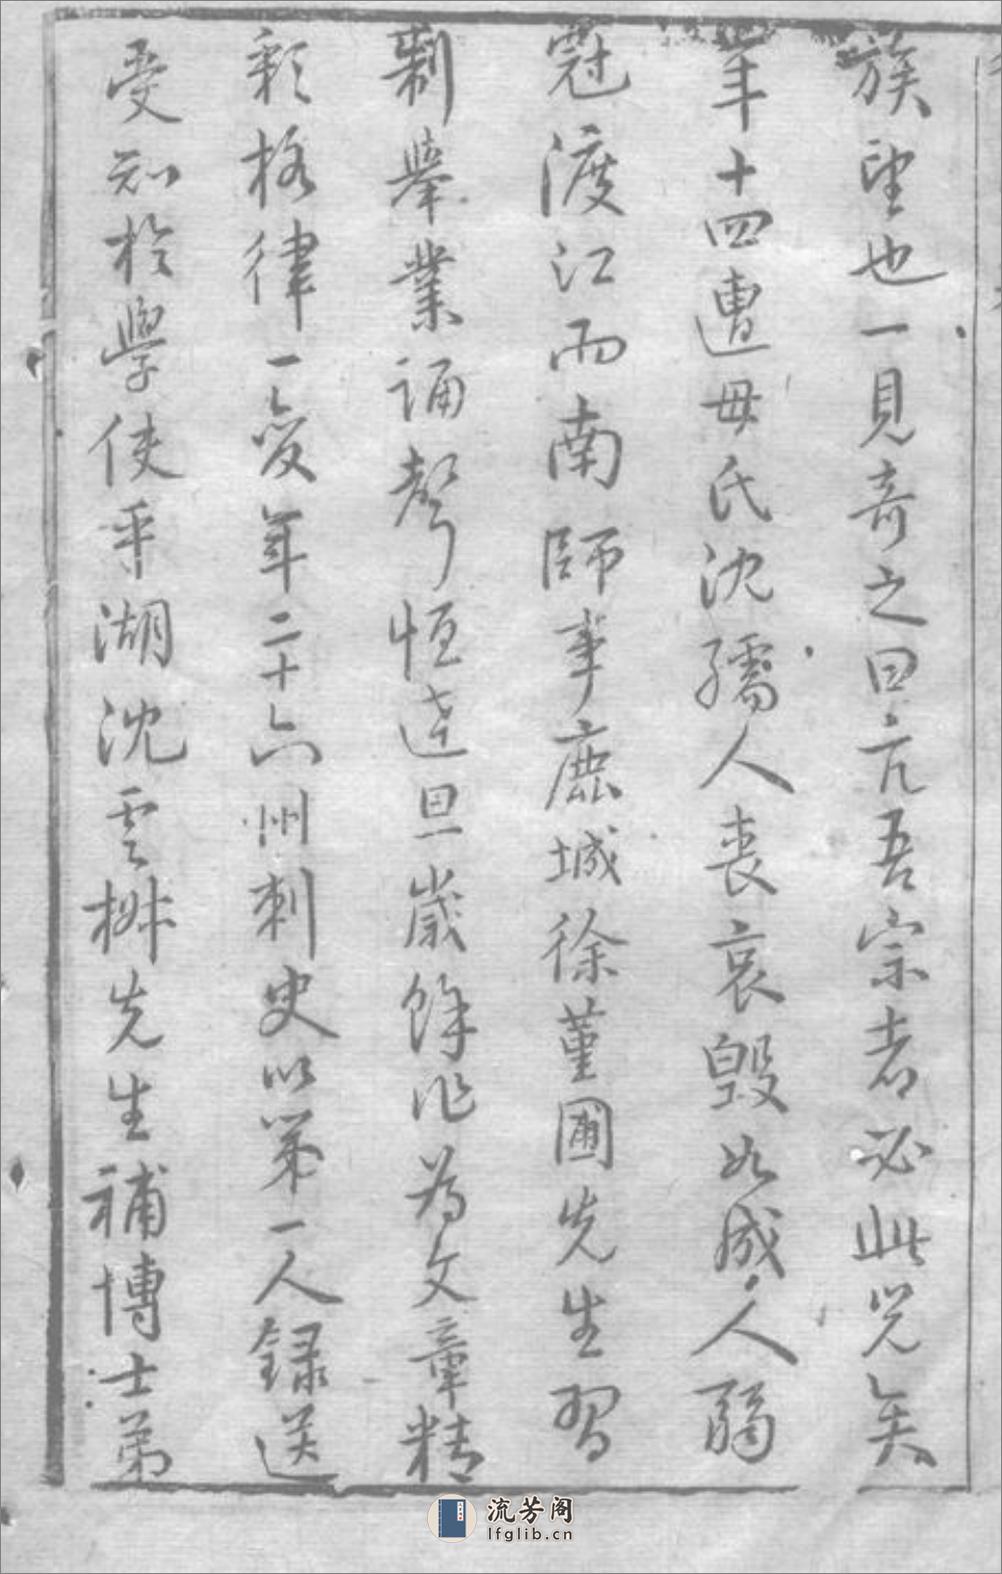 族望也一見奇之曰亢吾宗者必此兒矣
年十四遭母氏沈孺人喪哀毀如成人弱
冠渡江而南師事鹿城徐堇圃先生習
制舉業誦聲恒达旦歲餘作為文章精
彩格律一變年二十六州刺史以第一人録送
受知於學使平湖沈雲椒先生補博士弟
流芳阁
lfglib.cn